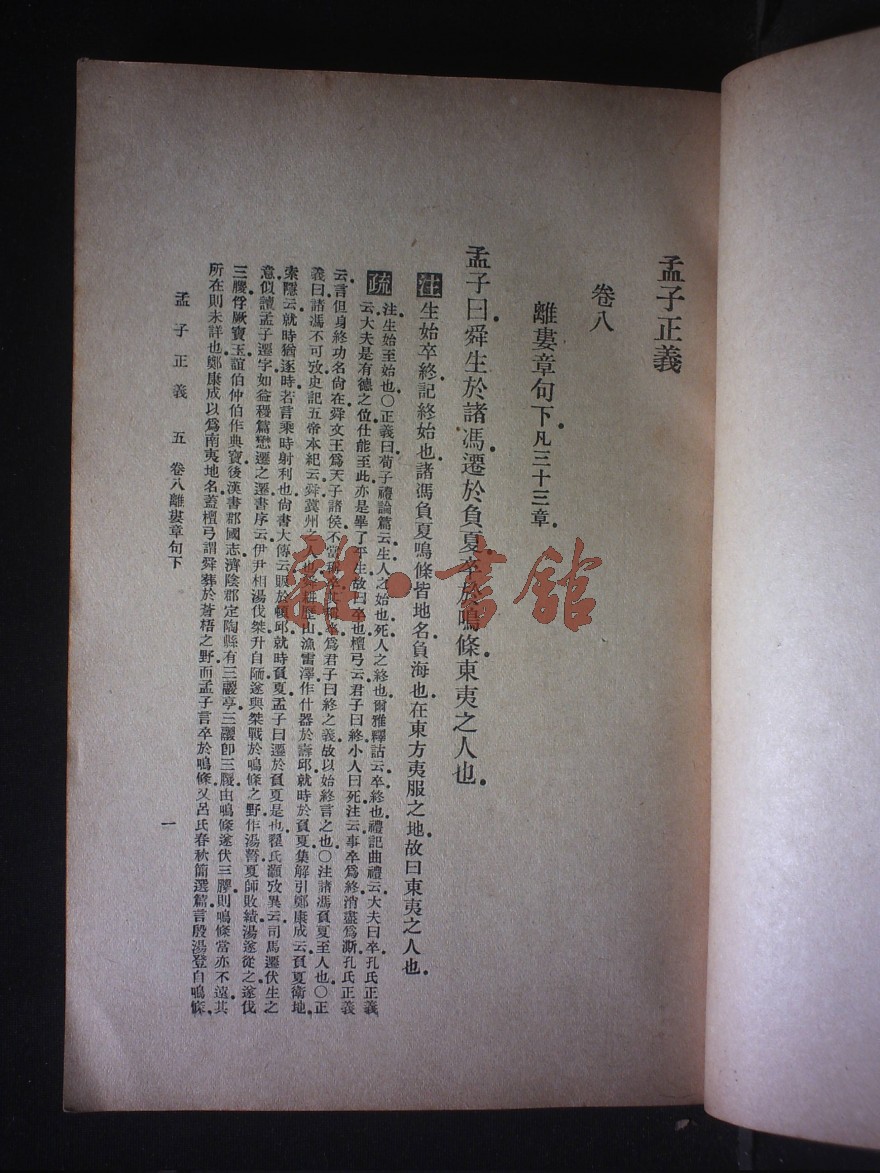 孟子正義
卷八
離婁章句下凡三十三章。
孟子曰。舜生於諸馮。遷於負夏。卒於鳴條。東夷之人也。
注 生始。卒終。記終始也。諸馮負夏鳴條。皆地名。負海也。在東方夷服之地。故曰東夷之人也。
疏 注生始至始也。〇正義曰。荀子禮論篇云。生人之始也。死人之終也。爾雅釋詁云。卒終也。禮記曲禮云。大夫曰卒。孔氏正義
云。大夫是有德之位。仕能至此。亦是畢了平生。故曰卒也。檀弓云。君子曰終。小人曰死。注云。事卒爲終。消盡爲澌。孔氏正義
云。言但身終功名尙在。舜文王爲天子諸侯。不當稱卒。爲君子曰終之義。故以始終言之也。〇注諸馮負夏至人也。〇正
義曰。諸馮不可攷。史記五帝本紀云。舜冀州之人也。耕歷山。漁雷澤。作什器於壽邱。就時於負夏。集解引鄭康成云。負夏衞地。
索隱云。就時猶逐時。若言乘時射利也。尙書大傳云。販於頓邱。就時負夏。孟子曰。遷於負夏是也。翟氏灝攷異云。司馬遷伏生之
意。似讀孟子遷字如益稷篇懋遷之遷。書序云。伊尹相湯伐桀。升自陑。遂與桀戰於鳴條之野。作湯誓。夏師敗績。湯遂從之。遂伐
三朡。俘厥寶玉。誼伯仲伯作典寶。後漢書郡國志。濟陰郡定陶縣有三鬷亭。三鬷卽三朡。由鳴條遂伐三朡。則鳴條當亦不遠。其
所在則未詳也。鄭康成以爲南夷地名。蓋檀弓謂舜葬於蒼梧之野。而孟子言卒於鳴條。又呂氏春秋簡選篇言殷湯登自鳴條。
孟子正義 五 卷八離婁章句下
一
雜·書館